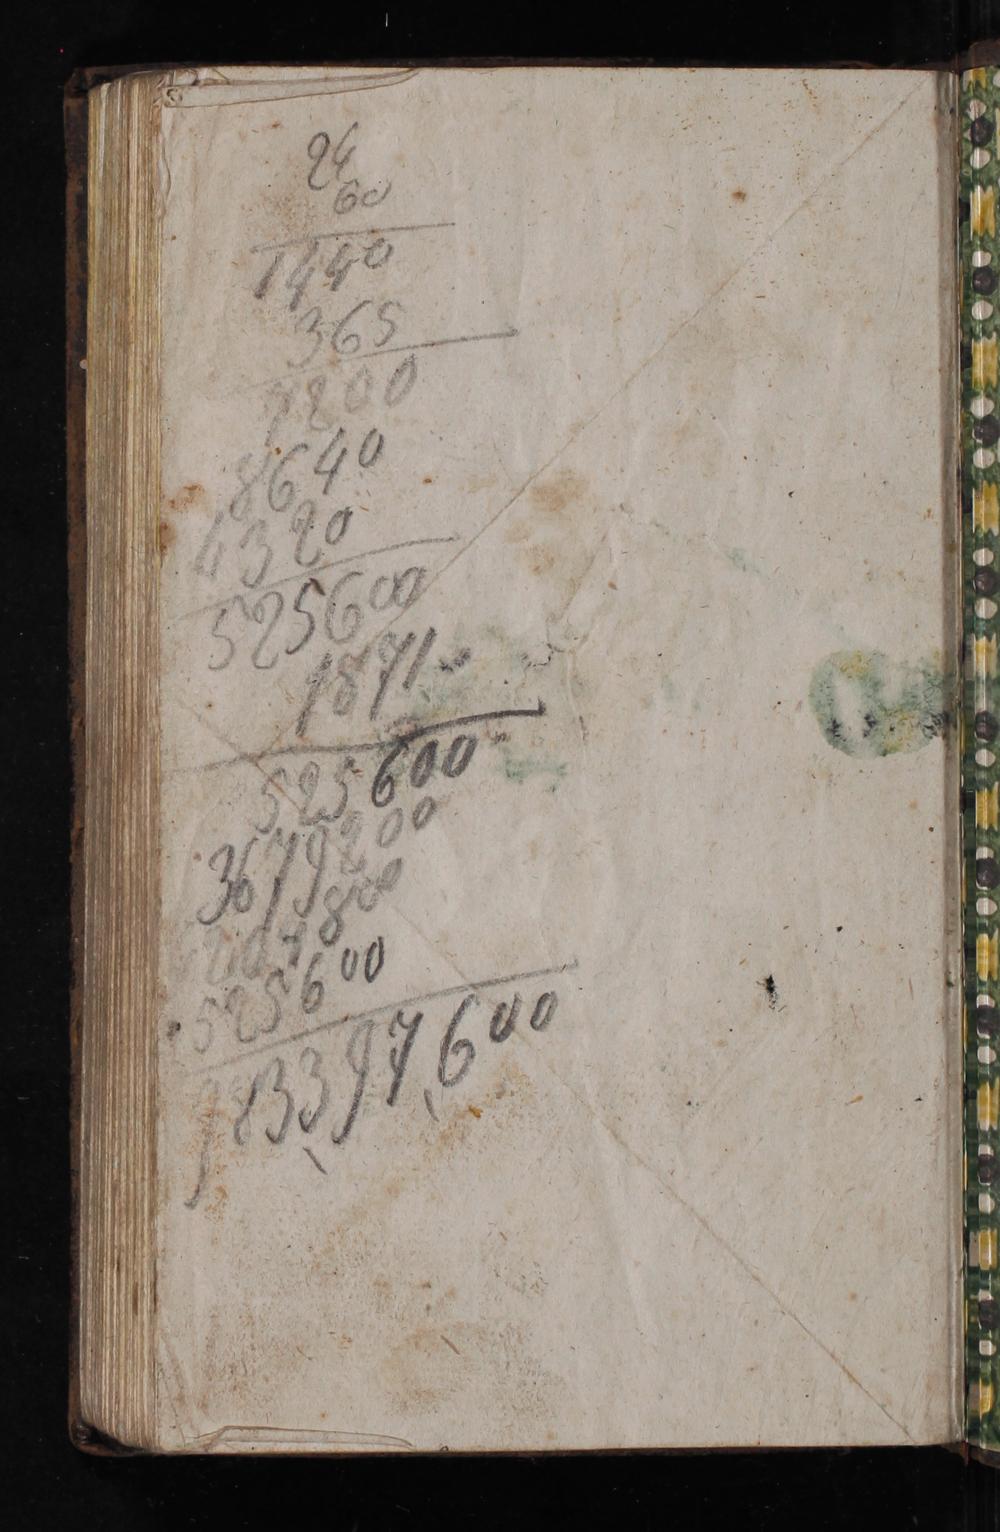 24
60
1440
365
7200
8640
4320
525600
1871
525600
3679200
4204800
525600
983397600